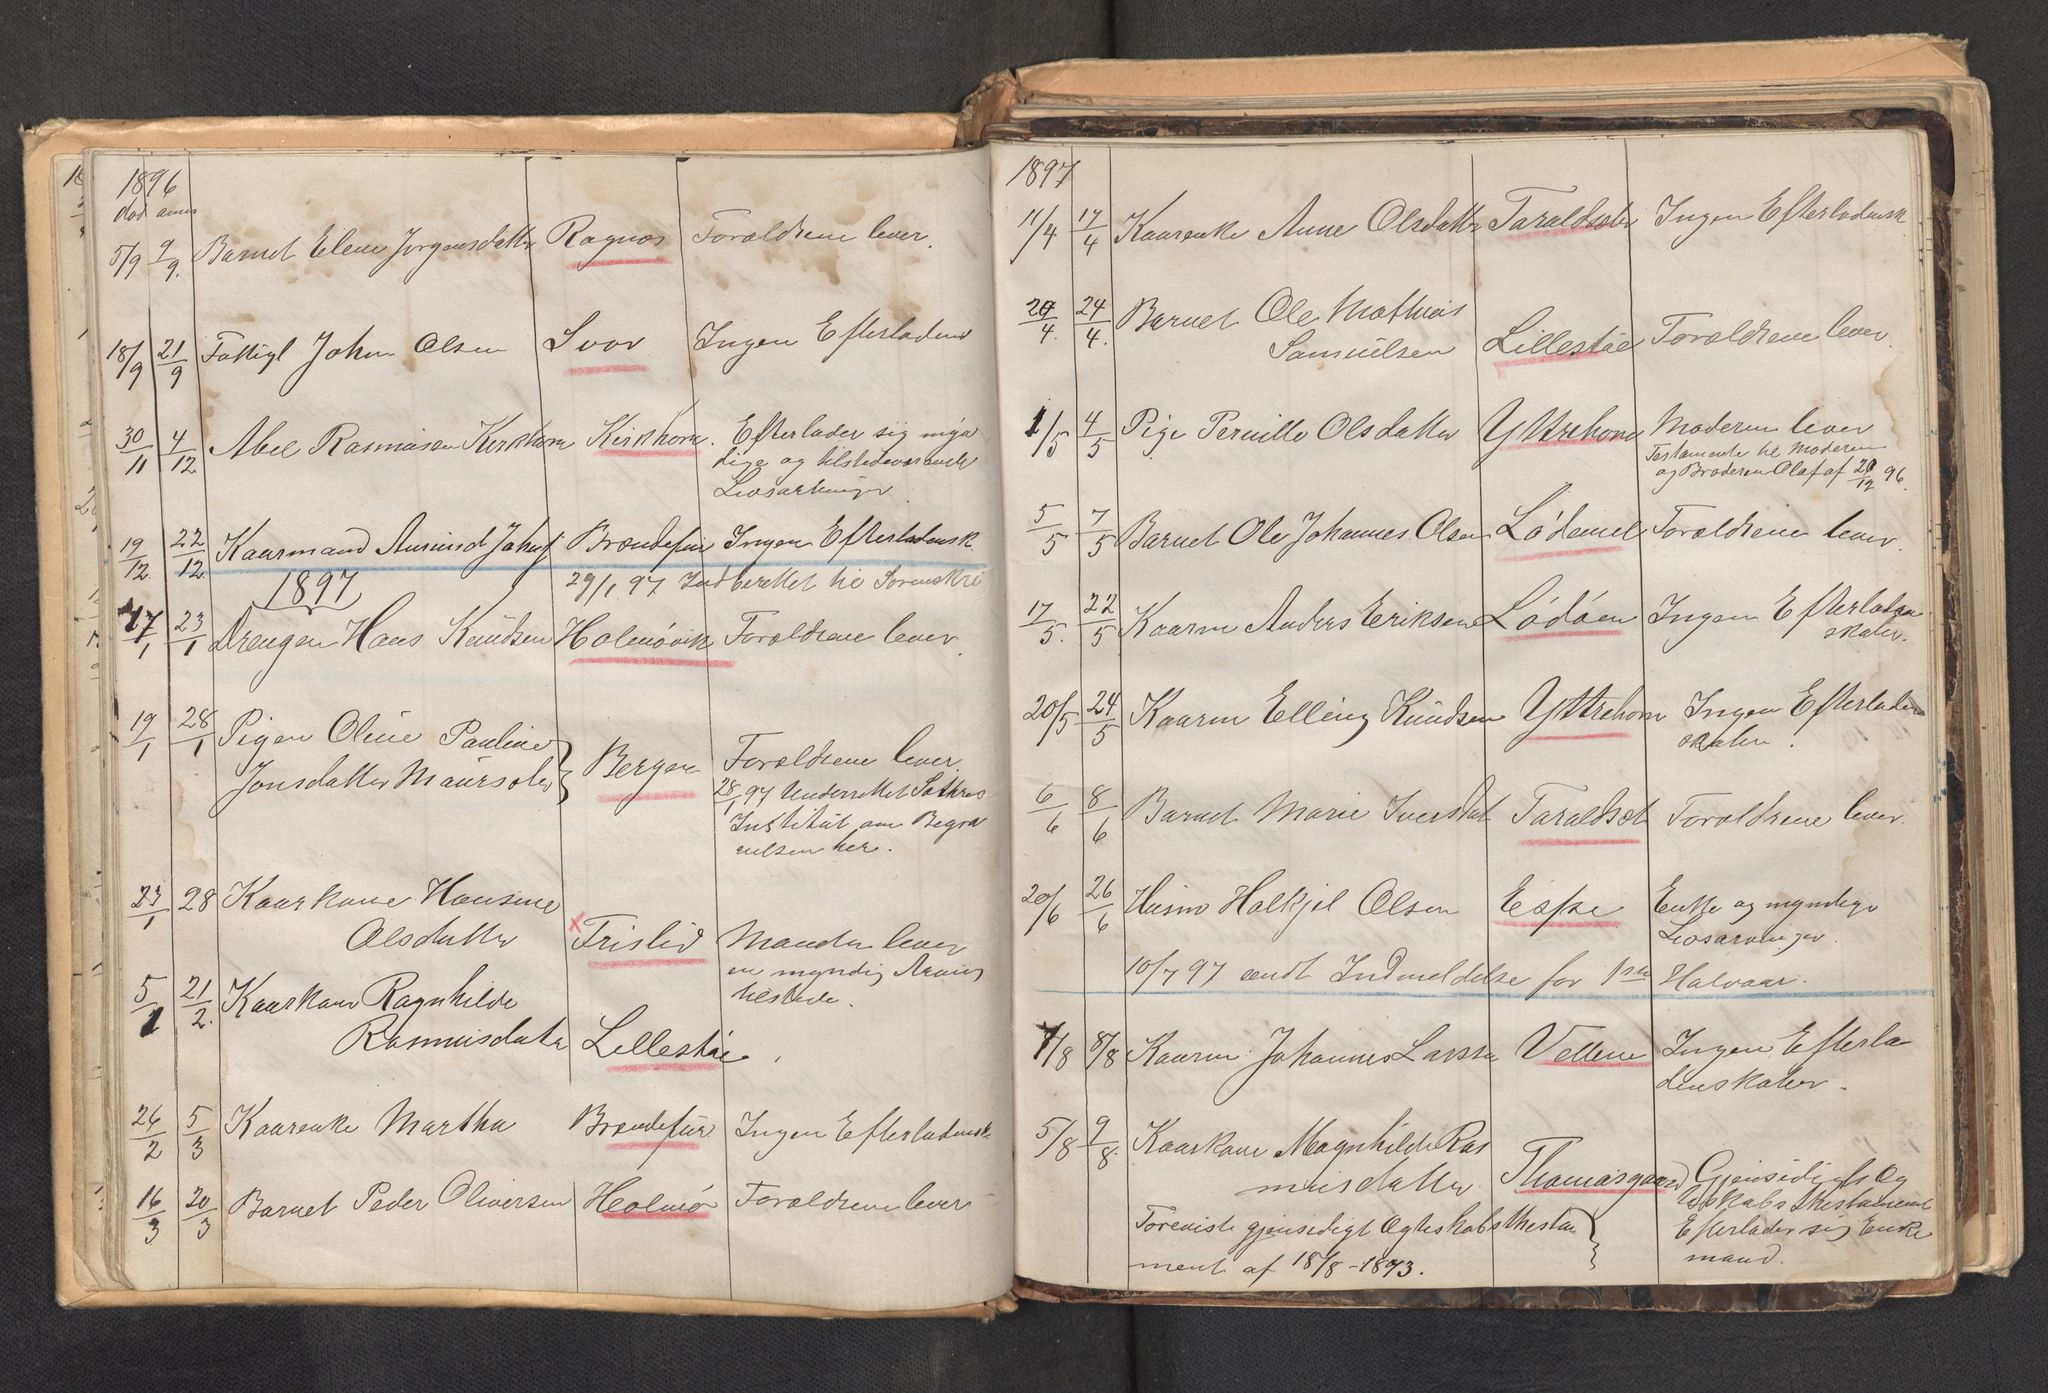 1896
død anm
5/9 9/9. Barnet Elene Jørgensdatter Ragnøs Forældrene lever.
18/9 21/9 Fattigl John Olsen Svor Ingen Efterladens
30/11 4/12 Abel Rasmusen Kirkhorn Kirkhorn. Efterlader sig myn
dige og tilstedeværende
Livsarvinger
19/12 22/12 Kaarmand Amund Johs Brændefur Ingen Efterladensk
1897 29/1 97 Indberettet til Sorenskri
17/1 23/1 Drengen Hans Knudsen Holmøvik Forældrene lever.
19/1 28/1 Pigen Oline Pauline
Jonsdatter Maursæter Bergen Forældrene lever.
28/1 97 Underrettet
Institut om Begra
velsen her.
23/1 28 Kaarkone Hansine
Olsdatter Frislid Manden lever
en myndig Arving
tilstede.
5/2 21/2. Kaarkone Ragnhilde
Rasmusdatter Lillestøl
26/2 5/3 Kaarenke Martha Brændefur Ingen Efterladensk.
16/3 20/3 Barnet Peder Oliversen Holmø Forældrene lever
1897
11/4 17/4 Kaarenke Anne Olsdatter Taraldsæter Ingen Efterladensk
20/4. 24/4. Barnet Ole Mathias
Samuelsen Lillestøl Forældrene lever.
1/5 4/5 Pige Pernille Olsdatter Yttrehorn Moderen lever
Testamente til Moderen
og Broderen Olaf af 20/12 96.
5/5 7/5 Barnet Ole Johannes Olsen Lødemel Forældrene lever.
17/5. 22/5 Kaarm Anders Eriksen Lødøen Ingen Efterladen
skaber.
20/5 24/5 Kaarm Elling Knudsen Yttrehorn Ingen Efterladen
skaber.
6/6 8/6 Barnet Marie Iversdat Taraldset Forældrene lever.
20/6 26/6 Husm Halkjel Olsen Espe Enke og myndige
Livsarvinger.
10/7 97 sendt Indmeldelse for Halvaar.
7/8 8/8 Kaarm: Johannes Larsen Vellene Ingen Efterla
denskaber.
5/8 9/8. Kaarkone Magnhilde Ras
musdatter Thomasgaard Gjensidigt Æg
teskabs Thestament
Efterlader sig Enke
mand.
Foreviste gjensidigt Ægteskabsthesta
ment af 18/8-1893.